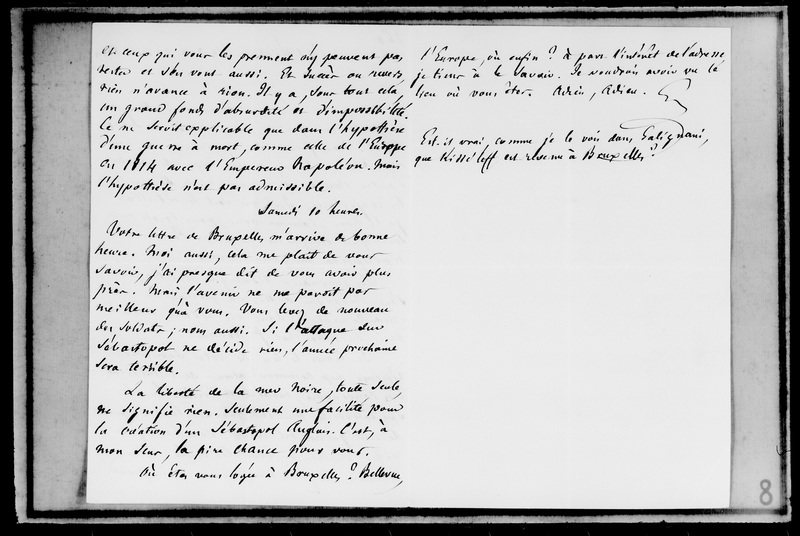 et ceux qui vous les prennent n'y peuvent pas
rester et s'en vont aussi. Et succès ou revers,
rien n'avance à rien. Il y a, sous tout cela,
un grand fonds d'absurdité et d'impossibilité.
Ce ne serait explicable que dans l'hypothèse
d'une guerre à mort, comme celle de l'Europe
en 1814 avec l'Empereur Napoléon. Mais
l'hypothèse n'est pas admissible.
Samedi 10 heures.
Votre lettre de Bruxelles m'arrive de bonne
heure. Moi aussi, cela me plaît de vous
savoir, j'ai presque dit de vous avoir plus
près. Mais l'avenir ne me paroit pas
meilleur qu'à vous. Vous levez de nouveau
des soldats ; nous aussi. Si l'attaque sur
Sébastopol ne décide rien, l'année prochaine
sera terrible.
La liberté de la mer Noire, toute seule,
ne signifie rien. Seulement une facilité pour
la création d'un Sébastopol Anglais. C'est, à
mon sens, la pire chance pour vous.
Où êtes vous logée à Bruxelles ? Bellevue,
l'Europe, où enfin ? à part l'intérêt de l'adresse
je tiens à le savoir. Je voudrais avoir vu le
lieu où vous êtes. Adieu, Adieu.
Est-il vrai, comme je le vois dans Galignani,
que Kisséleff est revenu à Bruxelles ?
8